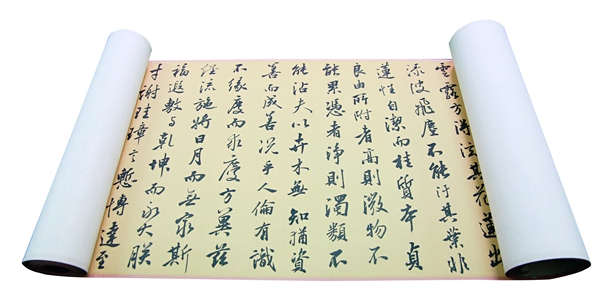 雲露方得泫其花蓮出
淥波飛塵不能汙其葉非
蓮性自潔而桂質本貞
良由所附者高則微物不
能累憑者淨則濁類不
能沾夫以卉木無知猶資
善而成善況乎人倫有識
不緣慶而求慶方冀茲
經流施將日月而無窮斯
福遐敷与乾坤而永大朕
才謝珪璋言慙博達至